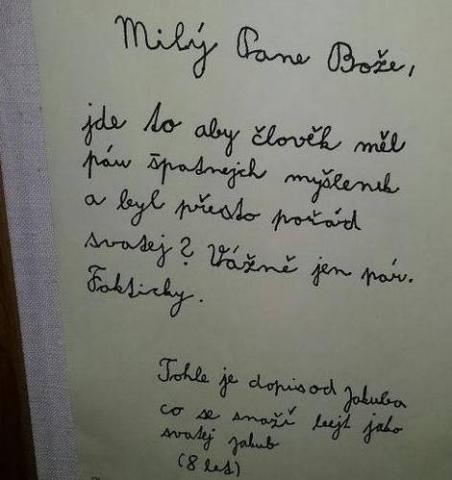 Milý Pane Bože,
jde to aby člověk měl
pár špatnejch myšlenek
a byl přesto pořád
svatej? Vážně jen pár.
Fakticky.
Tohle je dopis od Jakuba
co se snaží bejt jako
svatej Jakub
(8 let)